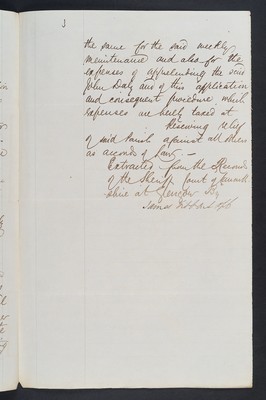 3
the same for the said weekly
maintenance and also for the
expenses of apprehending the said
John Daly and of this application
and consequent procedure which
expenses are herby taxed at
Reserving relief
of said Parish against all others
as accords of Law. —
Extracted from the Records
of the Sheriff Court of Lanark
shire at Glasgow By
James